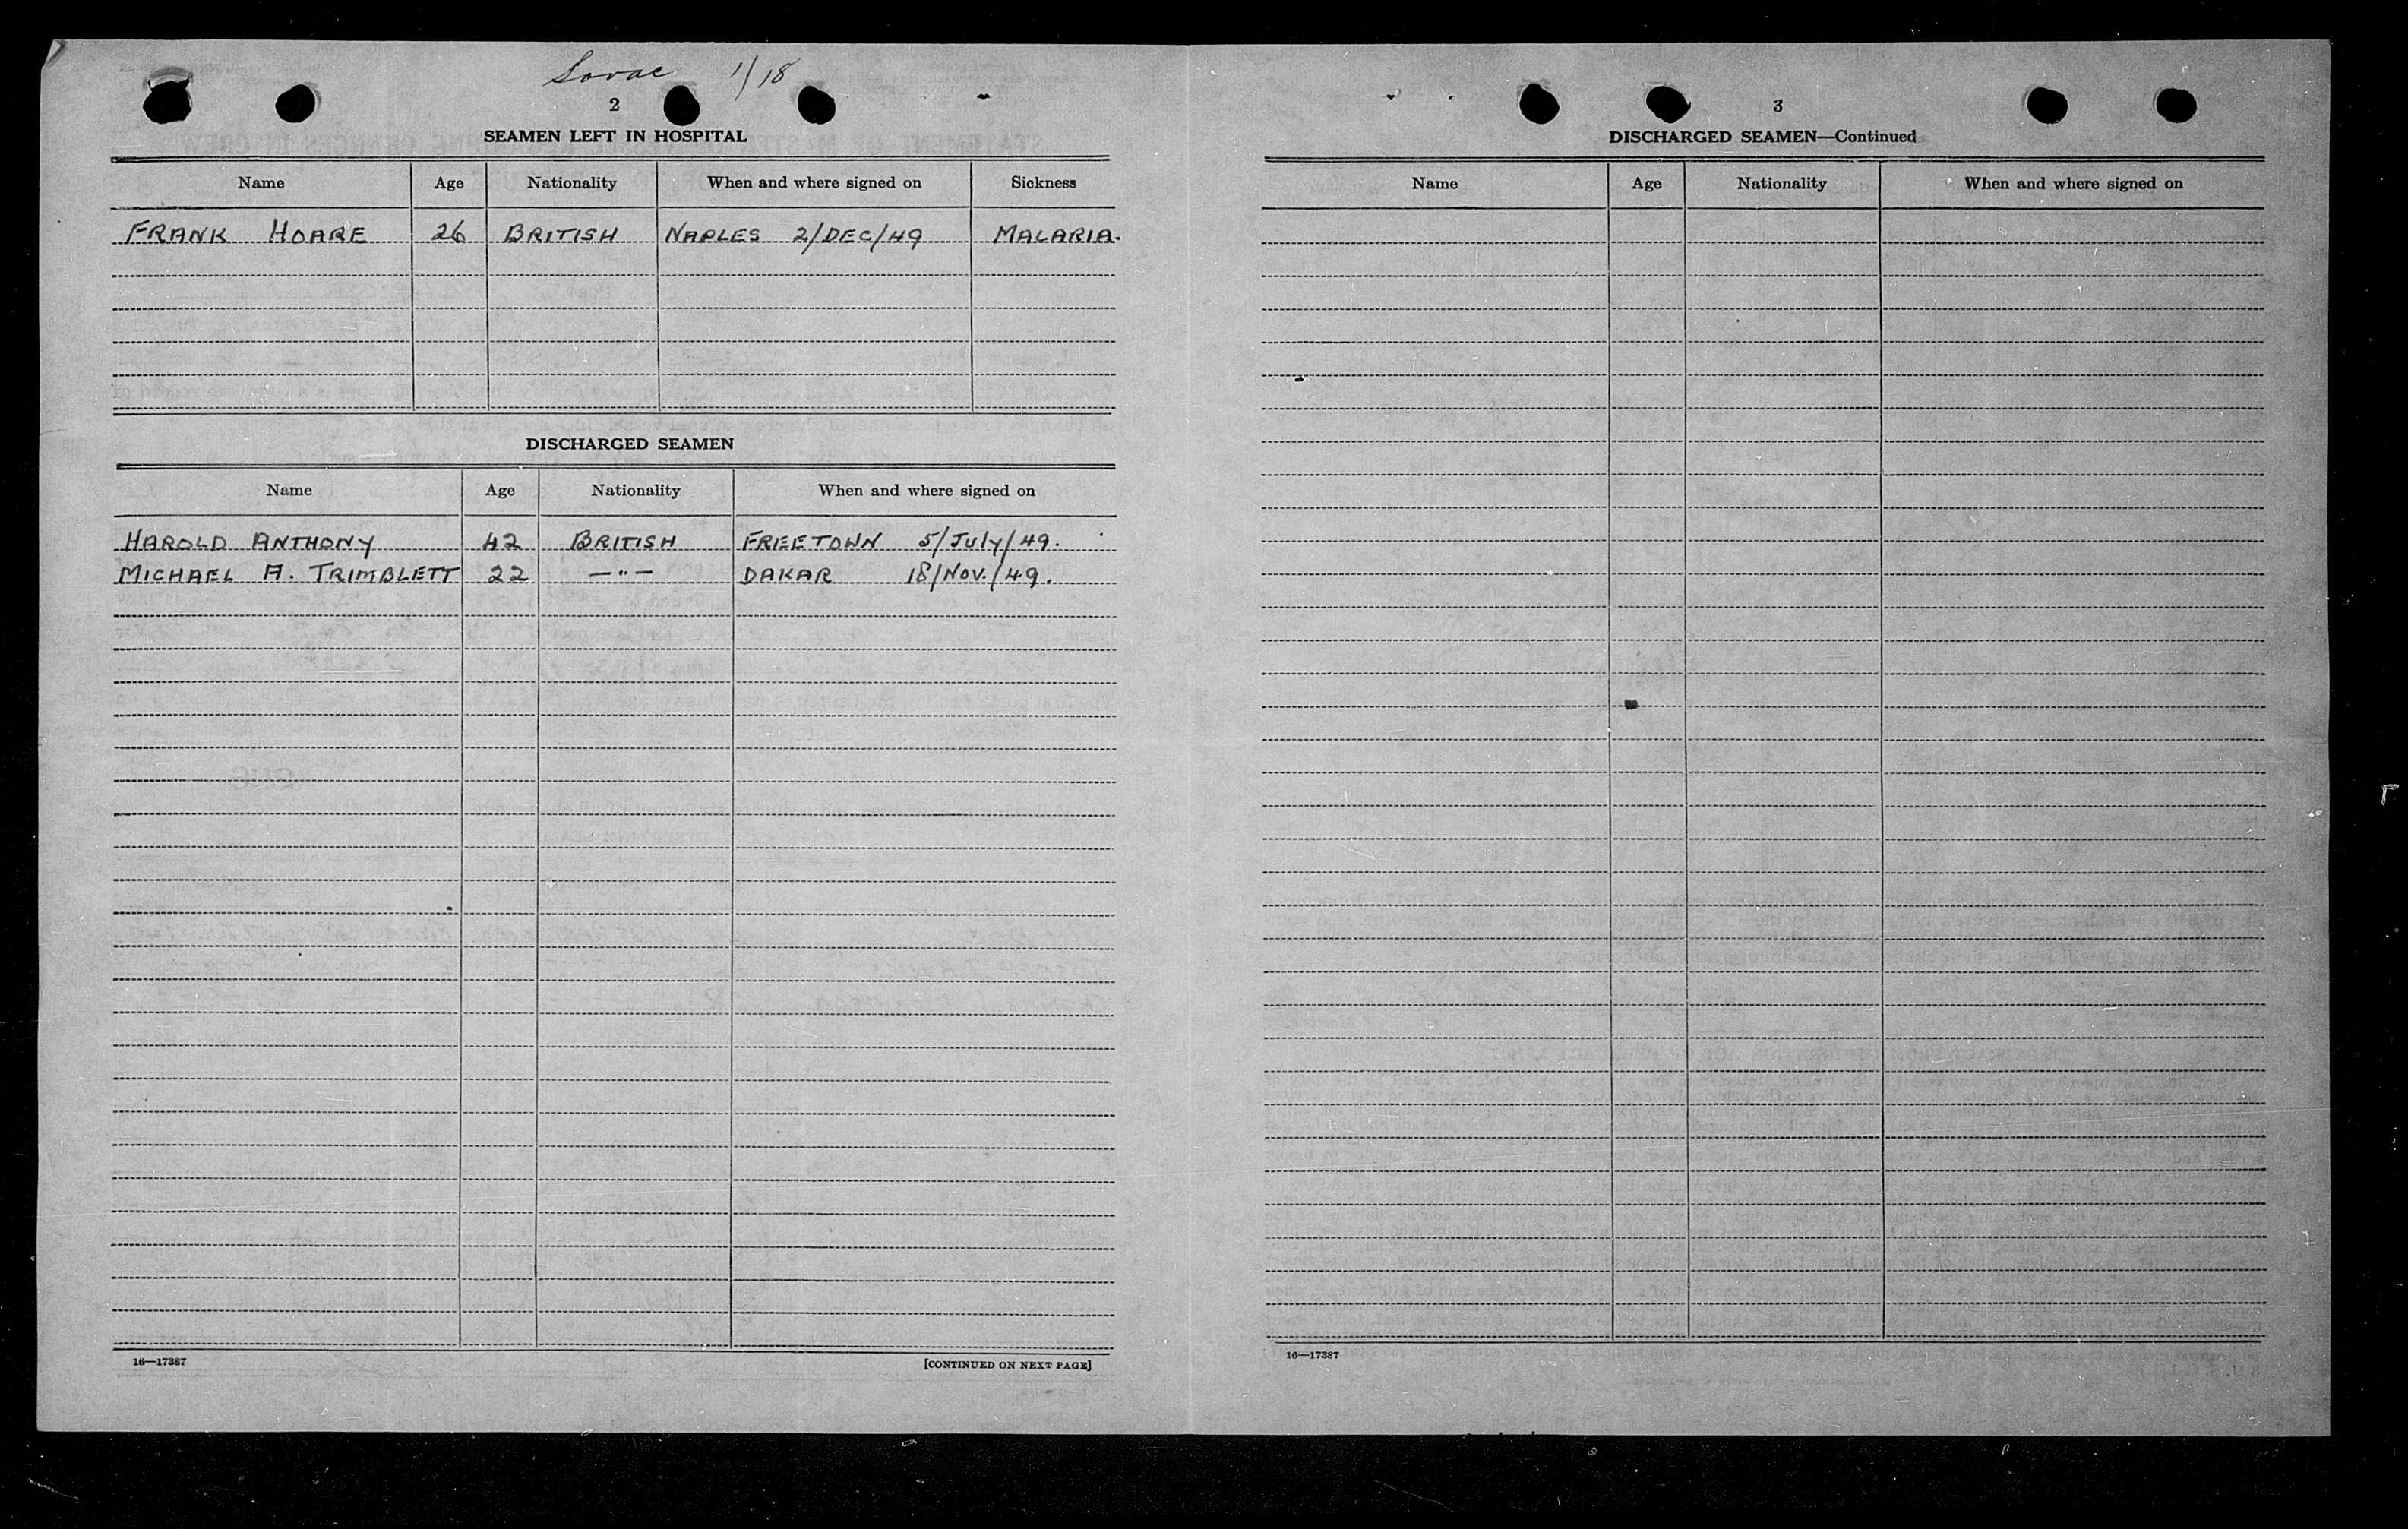 Lovac 1/18
2
SEAMEN LEFT IN HOSPITAL
Name Age Nationality When and where signed on Sickness
FRANK HOARE 26 BRITISH NAPLES 2/DEC/49 MALARIA.
DISCHARGED SEAMEN
Name Age Nationality When and where signed on
HAROLD ANTHONY 42 BRITISH FREETOWN 5/July/49.
MICHAEL A. TRIMBLETT 22 —"— DAKAR 18/NOV./49.
16—17387 [CONTINUED ON NEXT PAGE]
3
DISCHARGED SEAMEN—Continued
Name Age Nationality When and where signed on
16—17387